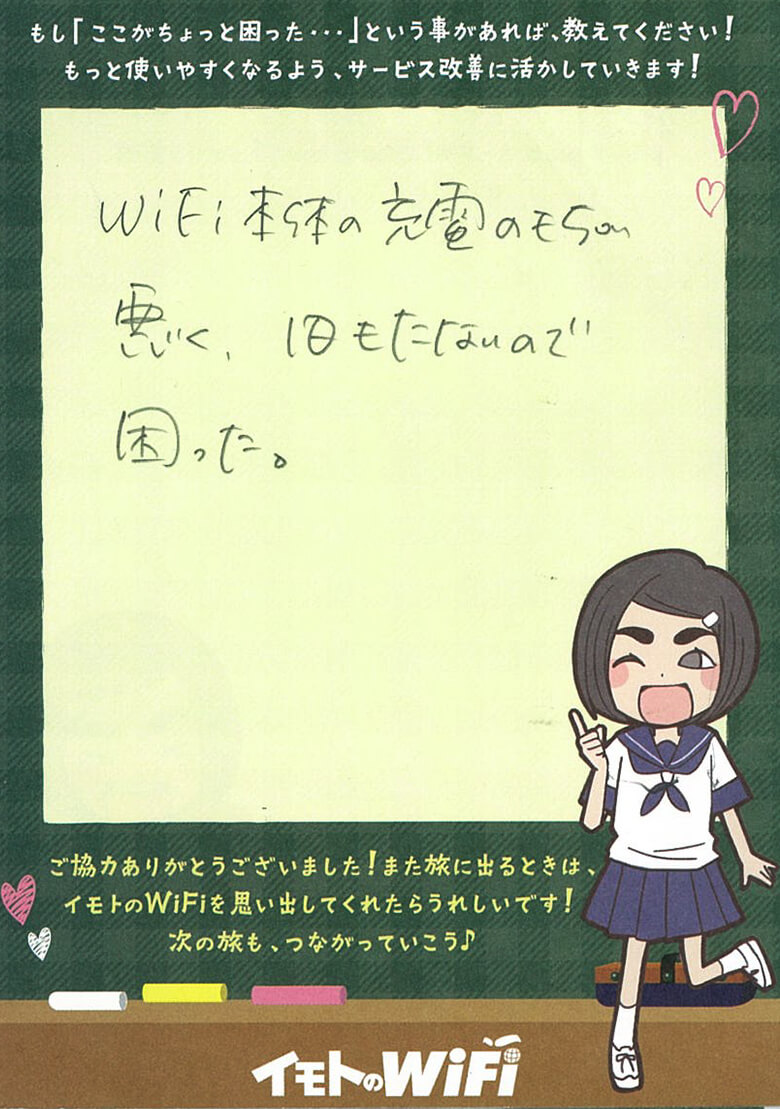 もし「ここがちょっと困った・・・」という事があれば、教えてください！
もっと使いやすくなるよう、サービス改善に活かしていきます！
WiFi本体の充電のもちが
悪く、1日もたないので
困った。
ご協力ありがとうございました！また旅に出るときは、
イモトのWiFiを思い出してくれたらうれしいです！
次の旅も、つながっていこう♪
イモトのWiFi